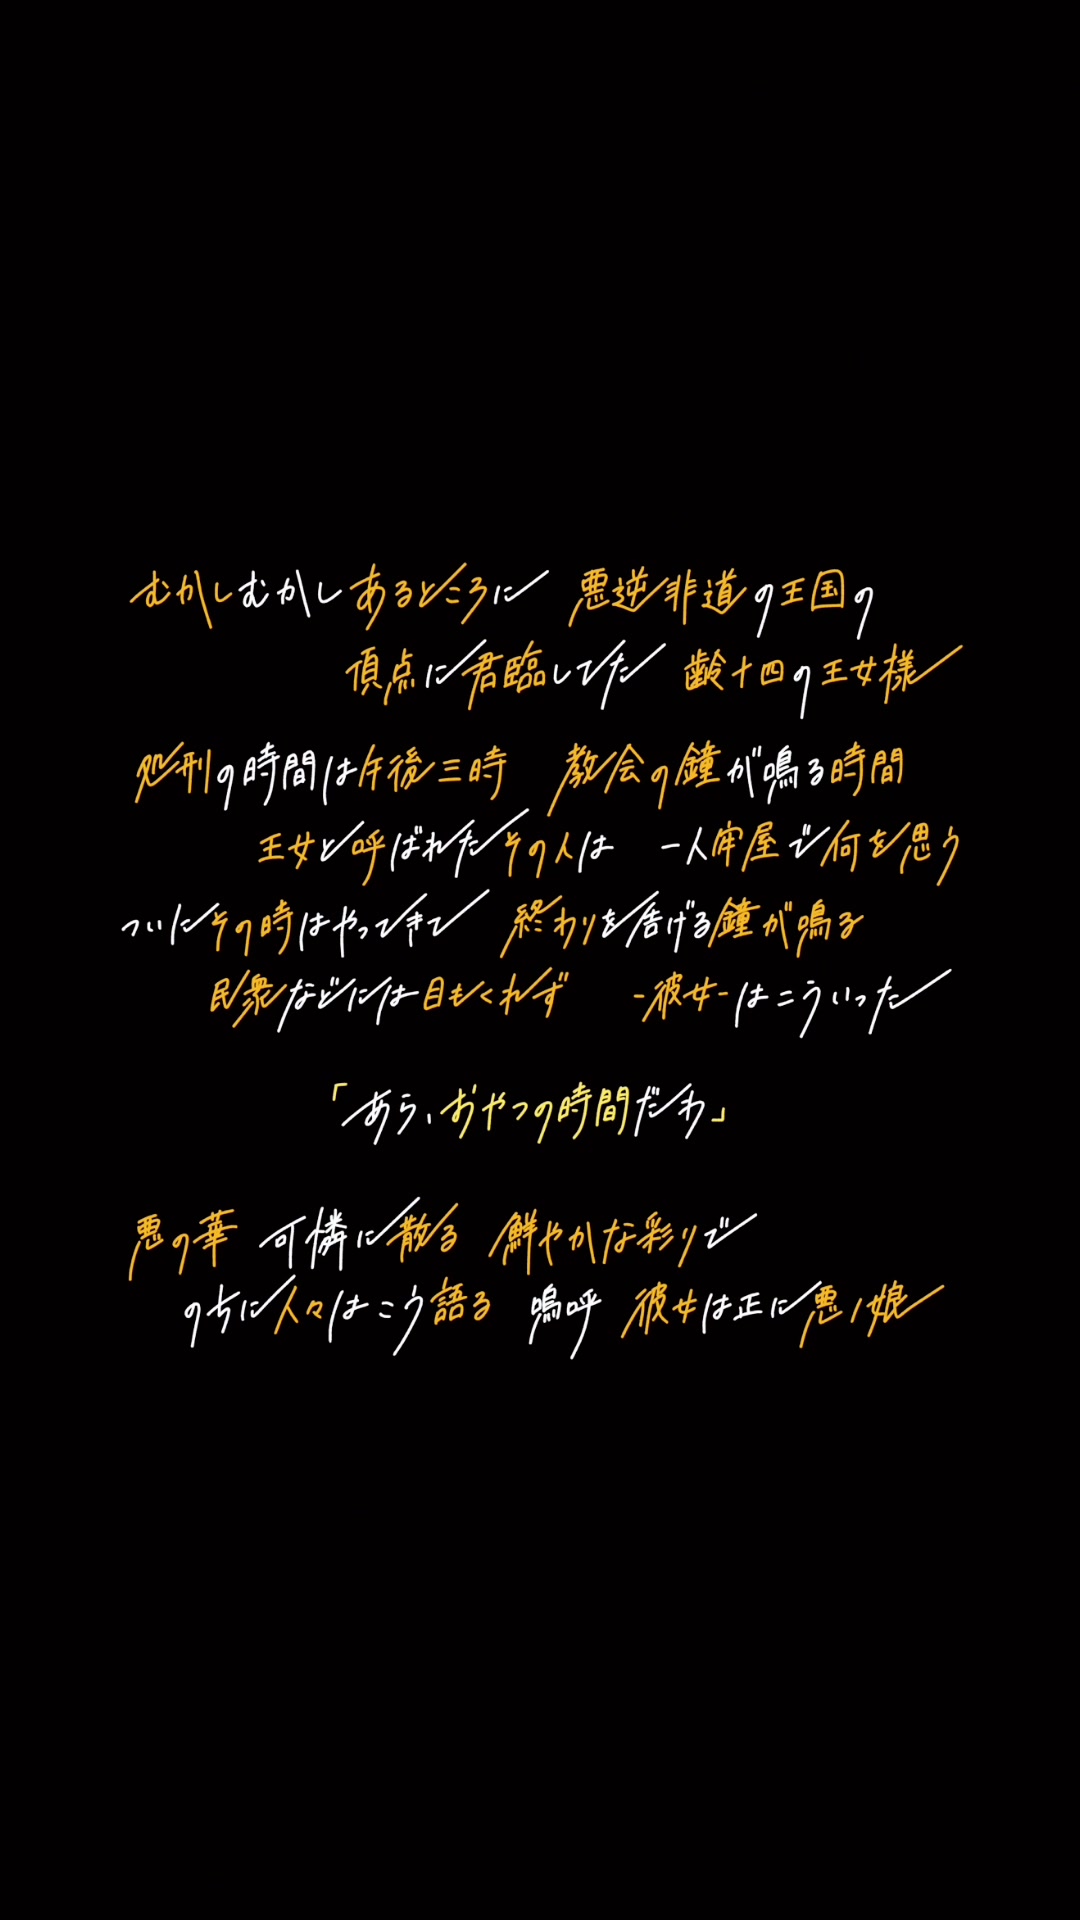 むかしむかしあるところに 悪逆非道の王国の
頂点に君臨してた 齢十四の王女様
処刑の時間は午後三時 教会の鐘が鳴る時間
王女と呼ばれたその人は 一人牢屋で何を思う
ついにその時はやってきて 終わりを告げる鐘が鳴る
民衆などには目もくれず -彼女-はこういった
「あら、おやつの時間だわ」
悪の華 可憐に散る 鮮やかな彩りで
のちに人々はこう語る 嗚呼 彼女は正に悪ノ娘